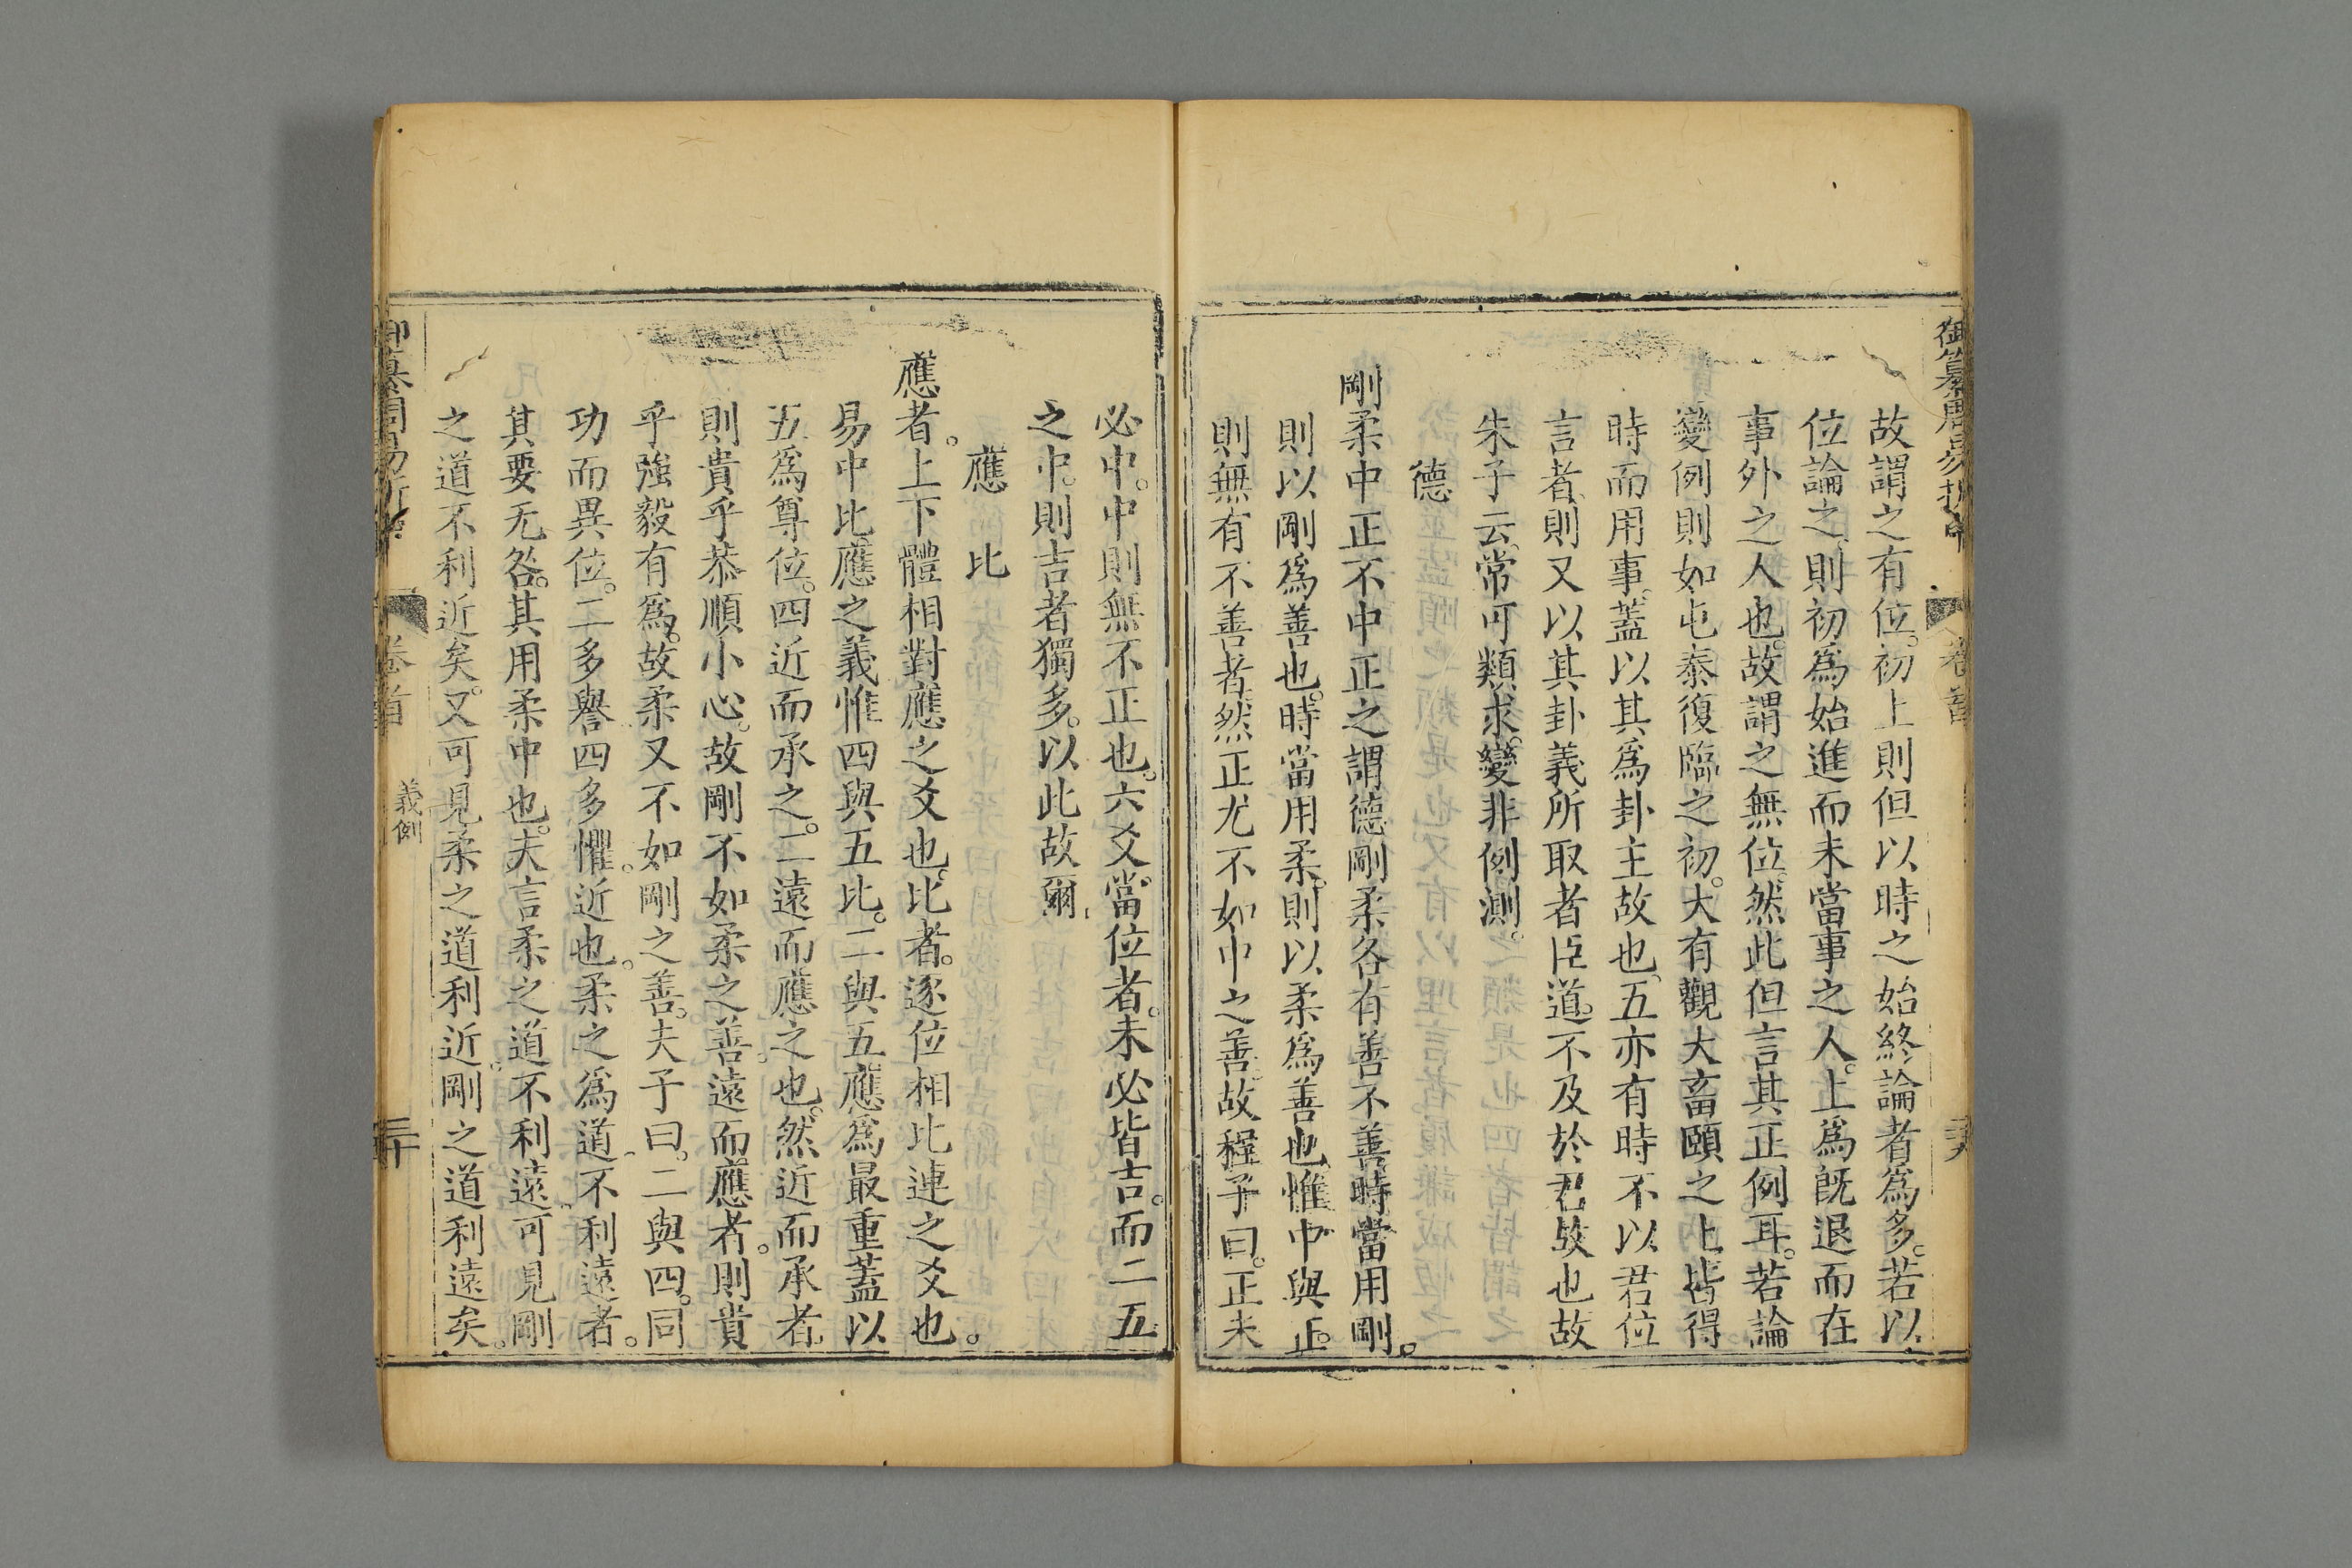 御纂周易折中
卷首
故謂之有位。初上則但以時之始終論者為多。若以
位論之。則初為始進而未當事之人。上為旣退而在
事外之人也。故謂之無位。然此但言其正例耳。若論
變例則如屯泰復臨之初。大有觀大畜頤之上皆得
時而用事。蓋以其為卦主故也。五亦有時不以君位
言者。則又以其卦義所取者臣道。不及於君故也故
朱子云。常可類求。變非例測。
德
剛柔中正不中正之謂德剛柔各有善不善時當用剛。
則以剛為善也。時當用柔。則以柔為善也。惟中與正。
則無有不善者。然正尤不如中之善。故程子曰。正未
必中。中則無不正也。六爻當位者。未必皆吉。而二五
之中。則吉者獨多。以此故爾
應 比
應者。上下體相對應之爻也。比者。逐位相比連之爻也。
易中比應之義惟四與五比。二與五應為最重蓋以
五為尊位。四近而承之。二遠而應之也。然近而承者。
則貴乎恭順小心。故剛不如柔之善。遠而應者。則貴
乎強毅有為。故柔又不如剛之善。夫子曰。二與四。同
功而異位。二多譽四多懼。近也。柔之為道。不利遠者。
其要无咎。其用柔中也。夫言柔之道不利遠。可見剛
之道不利近矣。又可見柔之道利近。剛之道利遠矣。
御纂周易折中
卷首
義例
三十